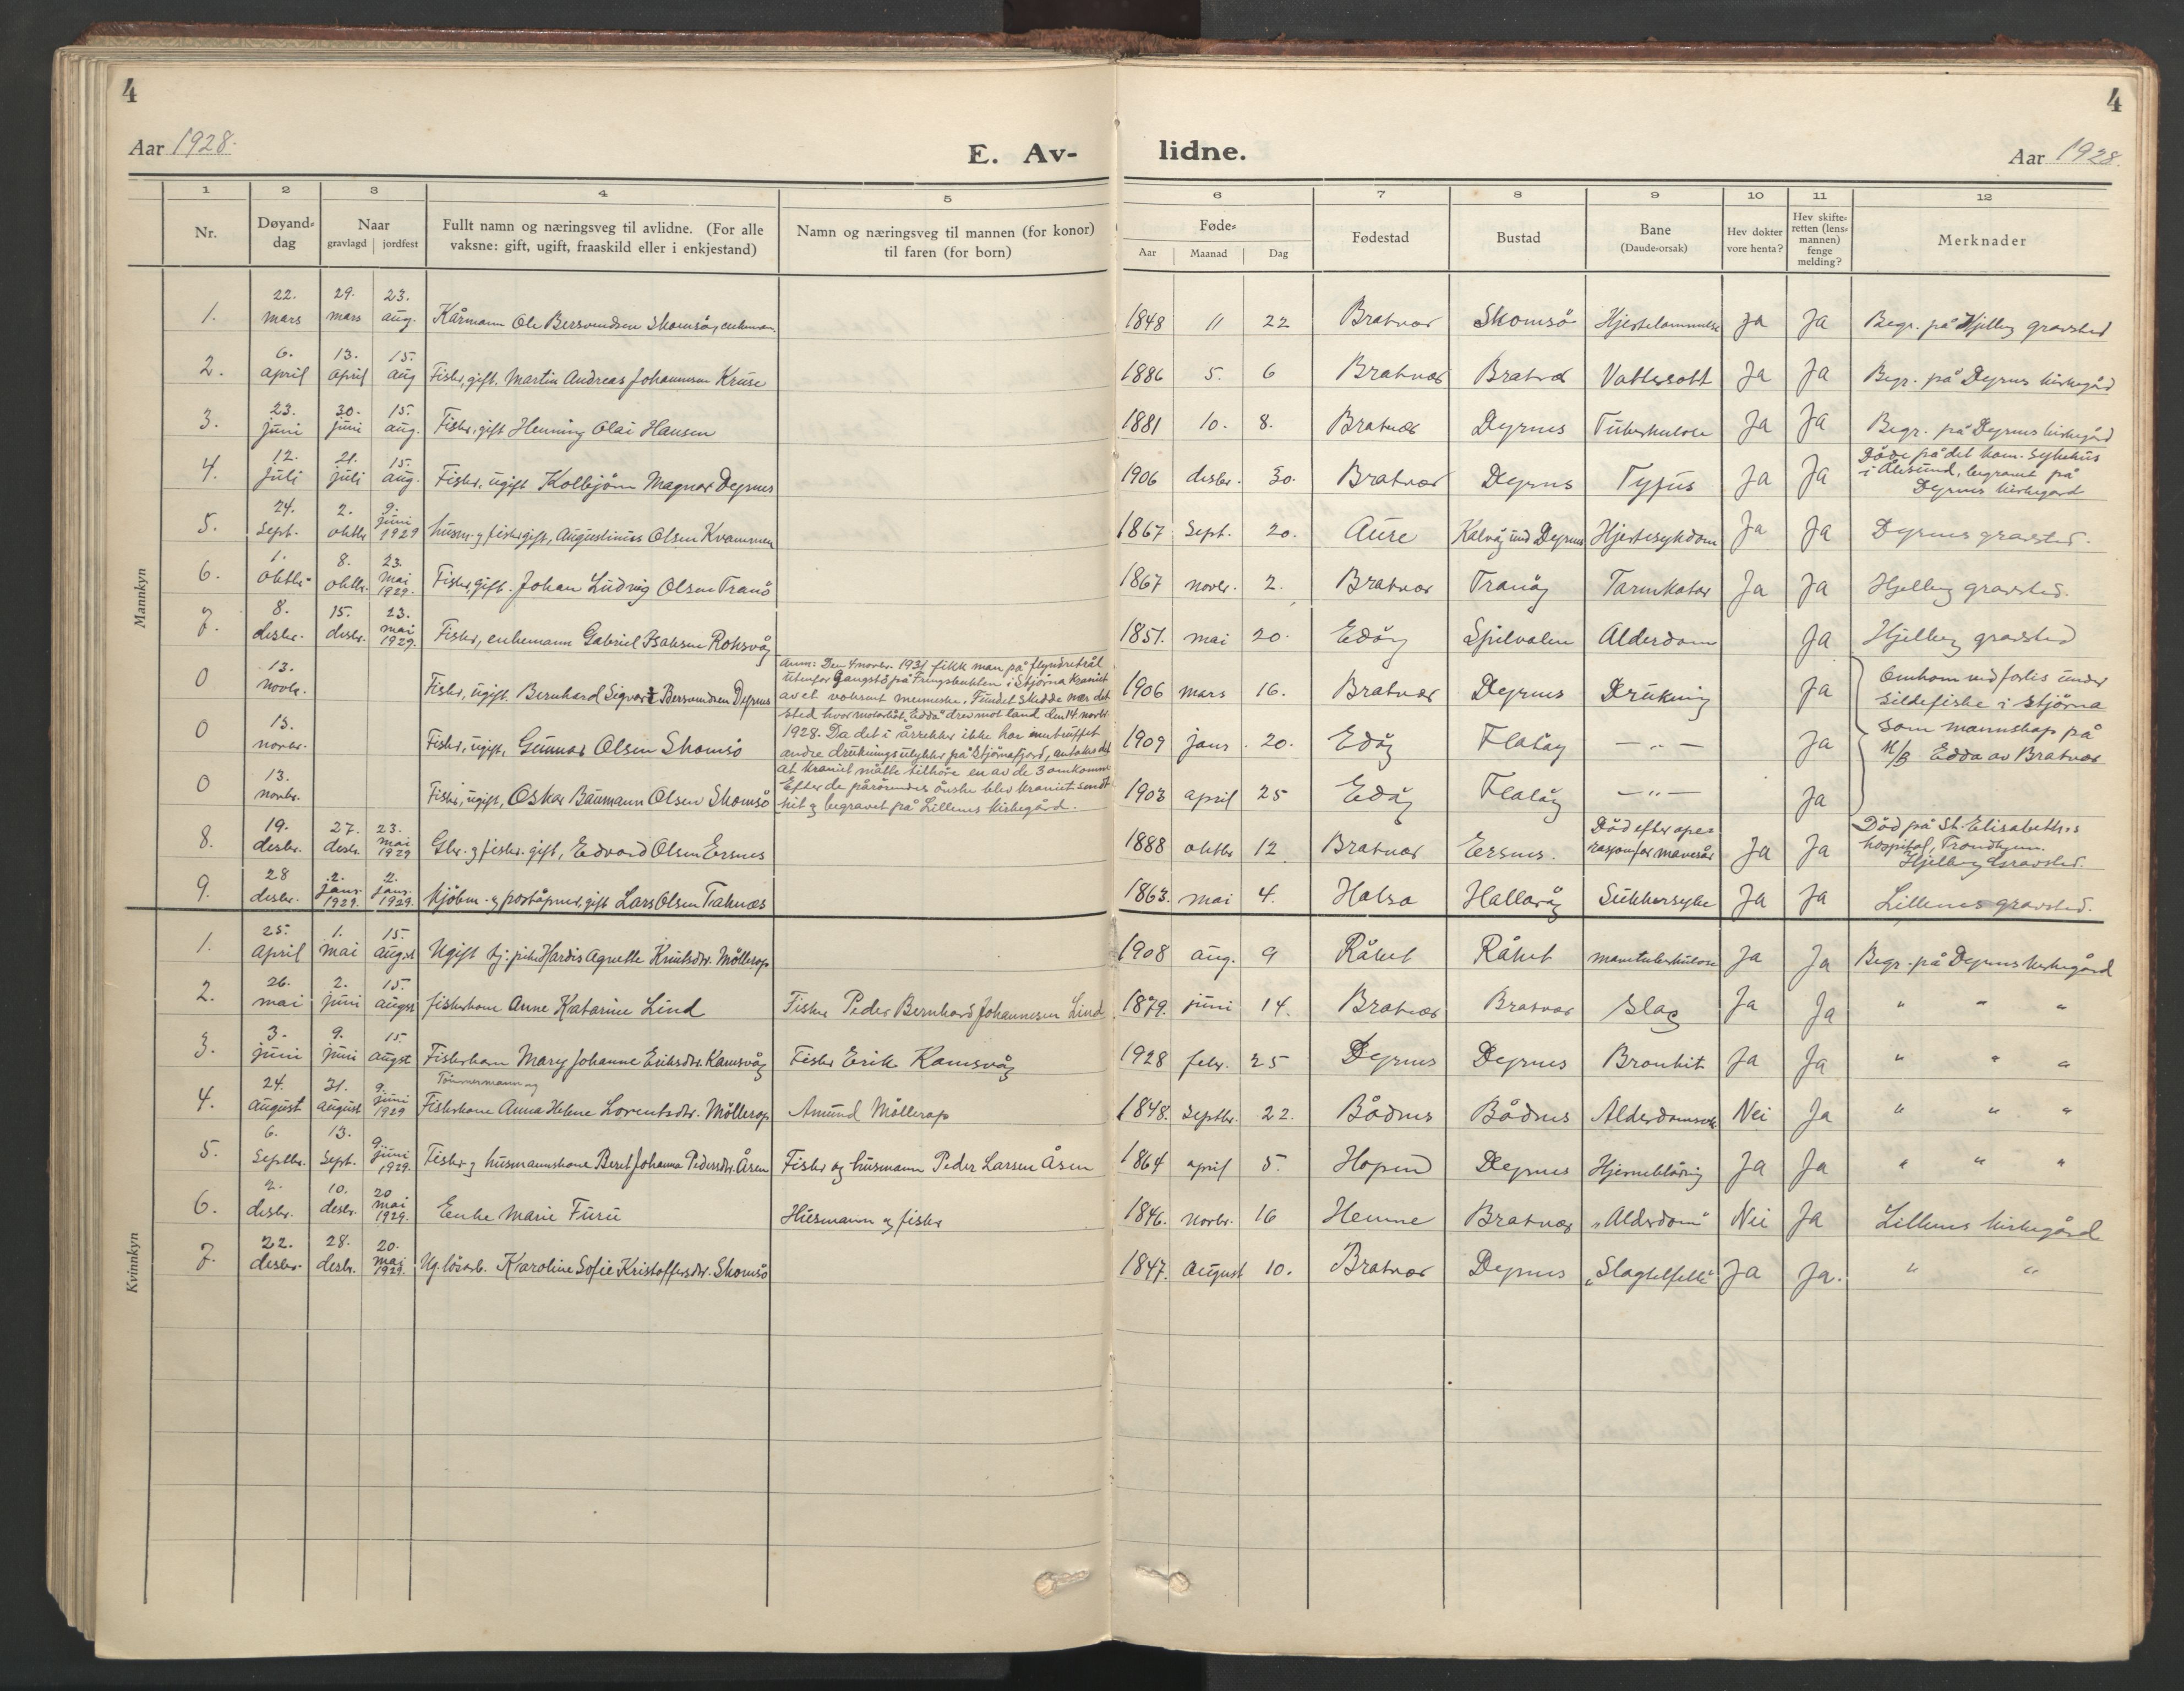 4
4
Aar 1928.
E. Av-
lidne.
Aar 1928.
1 2 3 4 5 6 7 8 9 10 11 12
Nr.
Døyand-
dag
Naar
gravlagd jordfest
Fullt namn og næringsveg til avlidne. (For alle
vaksne: gift, ugift, fraaskild eller i enkjestand)
Namn og næringsveg til mannen (for konor)
til faren (for born)
Føde-
Aar Maanad Dag
Fødestad
Bustad
Bane
(Daude-orsak)
Hev dokter
vore henta?
Hev skifte-
retten (lens-
mannen)
fenge
melding?
Merknader
Mannkyn
1. 22. mars 29. mars 23. aug. Kårmann Ole Bersvendsen Skomsöy, enkem. 1848 11 22 Bratvær Skomsö Hjertelammelse Ja Ja Begr. på Hjelley gravsted
2. 6. april 13. april 15. aug Fisker, gift. Martin Andreas Johannesen Kruse 1886 5. 6 Bratvær Bratvær Vattersott Ja Ja Begr. på Dyrnes kirkegård
3. 23. juni 30. juni 15. aug. Fisker, gift Henning Olai Hansen 1881 10. 8. Bratvær Dyrnes Tuberkulose Ja Ja Begr. på Dyrnes kirkegård
4. 12. juli 21. juli 15. aug. Fisker, ugift Kolbjörn Magnar Dyrnes 1906 desbr. 30. Bratvær Dyrnes Tyfus Ja Ja Döde på det kom. sykehus
i Ålesund, begravet på
Dyrnes kirkegard
5. 24. Sept. 2. oktbr 9. juni 1929 husm. og fisker gift, Augustinus Olsen Kvammen 1867 Sept. 20. Aure Kalvåg und Dyrnes Hjertesykdom Ja Ja Dyrnes gravsted.
6. 1. oktbr. 8. oktbr. 23. mai 1929. Fisker, gift. Johan Ludvig Olsen Tranö 1867 novbr. 2. Bratvær Tranöy Tarmkatar Ja Ja Hjelley gravsted.
7. 8. desbr. 15. desbr. 23. mai 1929. Fisker, enkemann Gabriel Isaksen Roksvåg 1851. mai 20. Edöy Spilvalen Alderdom Ja Hjelley gravsted
0 13. novbr. Fisker, ugift. Bernhard Sigvart Bersvendsen Dyrnes 1906 mars 16. Bratvær Dyrnes Drukning Ja
Anm: Den 4 novbr. 1931 fikk man på flyndretrål
utenfor Gangstö på Fringsbukten i Stjörna kraniet
av et voksent menneske. Fundet skedde nær det
sted hvor motorbåt "Edda" drev mot land den 14. novbr.
1928. Da det i årrekker ikke har inntruffet
andre drukningsulykker på Stjörnafjord, antakes det
at kraniet måtte tilhöre en av de 3 omkomne
Efter de pårörendes önske blev kraniet sendt
hit og begravet på Lillenes kirkegård.
Omkom ved forlis under
sildefiske i Stjörna
som mannskap på
M/B Edda av Bratvær
0 13. novbr. Fisker, ugift, Gunnar Olsen Skomsö 1909 janr. 20. Edöy Flatöy — " — Ja
0 13. novbr. Fisker, ugift, Oskar Baumann Olsen Skomsö 1903 april 25 Edöy Flatöy — " — Ja
8. 19. desbr. 27. desbr. 23. mai 1929 Gbr. og fisker. gift, Edvard Olsen Ersnes 1888 oktbr 12 Bratvær Ersnes. Död efter ope-
rasjon for mavesår Ja Ja Död på St. Elisabeths
hospital, Trondhjem.
Hjelley Gravsted.
9. 28 desbr. 2. janr. 1929. 2. janr. 1929. Kjöbm. og poståpner, gift Lars Olsen Traknæs 1863. mai 4. Halsa Hallaråg Sukkersyke Ja Ja Lillenes gravsted.
Kvinnkyn
1. 25. april 1. mai 15. august Ugift tj. pike Hardis Agnethe Knutsdtr. Möllerop 1908 aug. 9 Råket Råket mavetuberkulose Ja Ja Begr. på Dyrnes kirkegård
2. 26. mai 2. juni 15. august fiskerkone Anne Katarine Lind Fisker Peder Bernhard Johannesen Lind 1879. juni 14. Bratvær Bratvær Slag Ja Ja " " "
3. 3. juni 9. juni 15. augst Fiskerbarn Mary Johanne Eriksdtr. Ramsvåg Fisker Erik Ramsvåg 1928 febr. 25 Dyrnes Dyrnes Bronkit Ja Ja " " "
4. 24. august 31. august 9. juni 1929 Tömmermann og
Fiskerkone Anna Helene Lorentsdtr. Möllerop Amund Möllerop 1848. septbr. 22. Bådnes Bådnes Alderdomssvk. Nei Ja " " "
5. 6. Septbr. 13. Sept. 9. juni 1929. Fisker og husmannskone Beret Johanna Pedersdtr. Åsen Fisker og husmann Peder Larsen Åsen 1864 april 5. Hopen Dyrnes Hjerneblödning Ja Ja " " "
6. 2. desbr. 10. desbr. 20 mai 1929. Enke Marie Furu Husmann og fisker 1846. Novbr. 16 Hemne Bratvær "Alderdom" Nei Ja Lillenes kirkegård
7. 22. desbr. 28. desbr. 20. mai 1929. Ug. lösarb. Karoline Sofie Kristoffersdtr. Skomsö 1847. August 10. Bratvær Dyrnes "Slagtilfelle" Ja Ja. " "